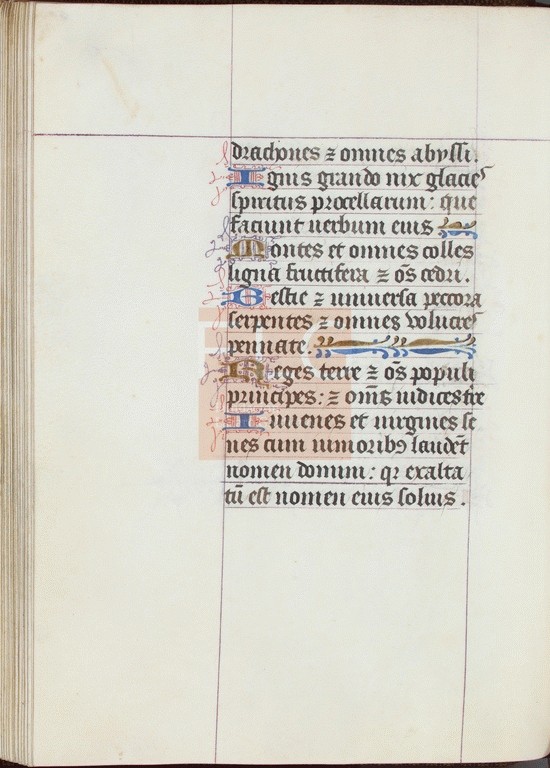 drachones ⁊ omnes abyssi.
Ignis grando nix glacies
spiritus procellarum: que
faciunt uerbum eius
Montes et omnes colles
ligna fructifera ⁊ oẽs cedri.
Bestie ⁊ uniuersa peccora
serpentes ⁊ omnes volucres
pennate.
Reges terre ⁊ oẽs populi
principes: ⁊ om̃s iudices tre
Iuuenes et uirgines se
nes cum iunioribꝰ laudẽt
nomen domini: qr exalta
tũ est nomen eius solius.